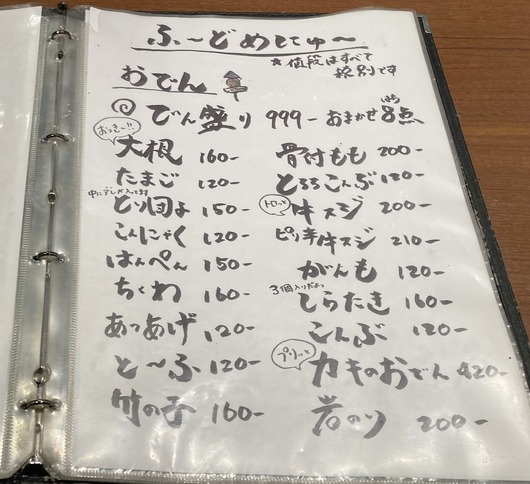 ふ〜どめにゅ〜
★値段はすべて
税別です
おでん
でん盛り 999- おまかせ8点
はち
おっきぃ!!
大根 160-
たまご 120-
とり団子 150-
こんにゃく 120-
はんぺん 150-
ちくわ 160-
あつあげ 120-
と〜ふ 120-
竹の子 160-
骨付もも 200-
とろろこんぶ 120-
トロッと
牛スジ 200-
ピリ辛牛スジ 210-
がんも 120-
3個入りだよ
しらたき 160-
こんぶ 120-
プリッと
カキのおでん 420-
岩のり 200-